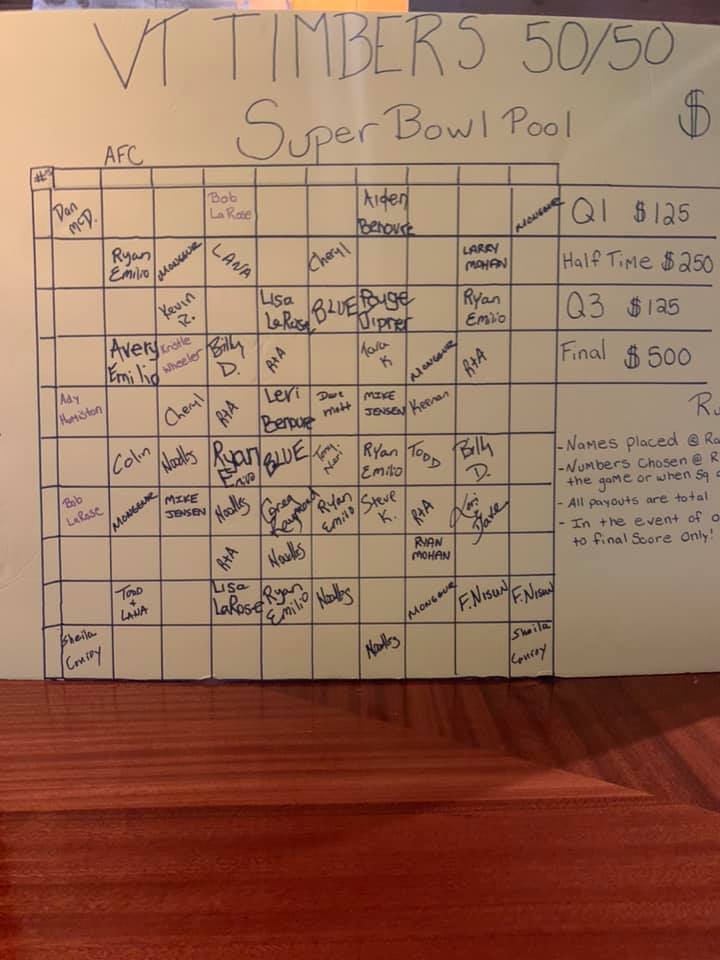 VT TIMBERS 50/50
Super Bowl Pool $
AFC
#'s
Dan McD. Bob LaRose Aiden Benoure Mongeur
Q1 $125
Ryan Emilio Mongeur LANA Cheryl LARRY MOHAN
Half Time $250
Kevin R. Lisa LaRose BLUE Ryan Emilio
Q3 $125
Avery Emilio Wheeler Billy D. R+A Tara K Mongeur R+A
Final $500
Cheryl R+A Levi Benoure Dave Matt MIKE JENSEN Keenan
Ru
Colin Noodles Ryan Emilio BLUE Tony Ryan Emilio TODD Billy D.
- Names placed @ Ra
- Numbers Chosen @ R
the game or when sq
Bob LaRose Mongeur MIKE JENSEN Noodles Greg Raymond Ryan Emilio Steve K. R+A Jake
- All payouts are total
- In the event of
to final Score Only!
R+A Noodles RYAN MOHAN
TODD + LANA Lisa LaRose Ryan Emilio Noodles Mongeur F. Nisun F. Nisun
Sheila Conroy Noodles Sheila Conroy